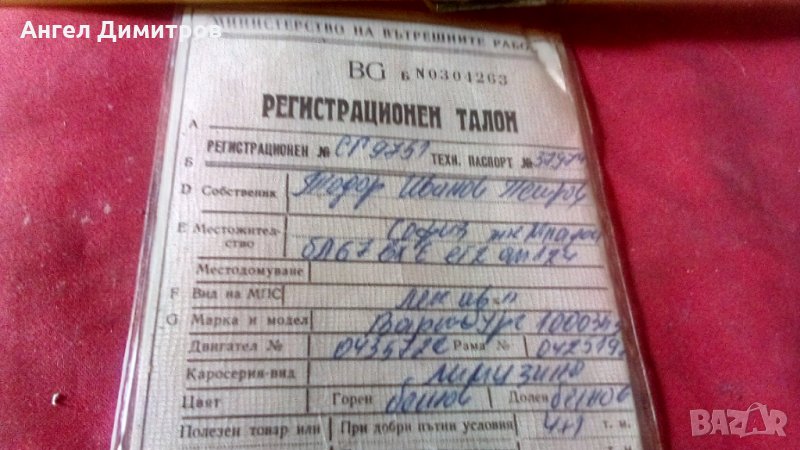 Ангел Димитров
МИНИСТЕРСТВО НА ВЪТРЕШНИТЕ РАБО
BG Б N0304263
РЕГИСТРАЦИОНЕН ТАЛОН
A
РЕГИСТРАЦИОНЕН № СГ 9751 ТЕХН. ПАСПОРТ №
B
D Собственик Тодор Иванов Петров
E Местожител-
ство
София
бл 67
Местодомуване
F Вид на МПС лек
G Марка и модел Вартбург 1000
Двигател № Рама №
Каросерия-вид лимузина
Цвят Горен бежов Долен бежов
Полезен товар или При добри пътни условия 4+1 т. м.
BAZAR